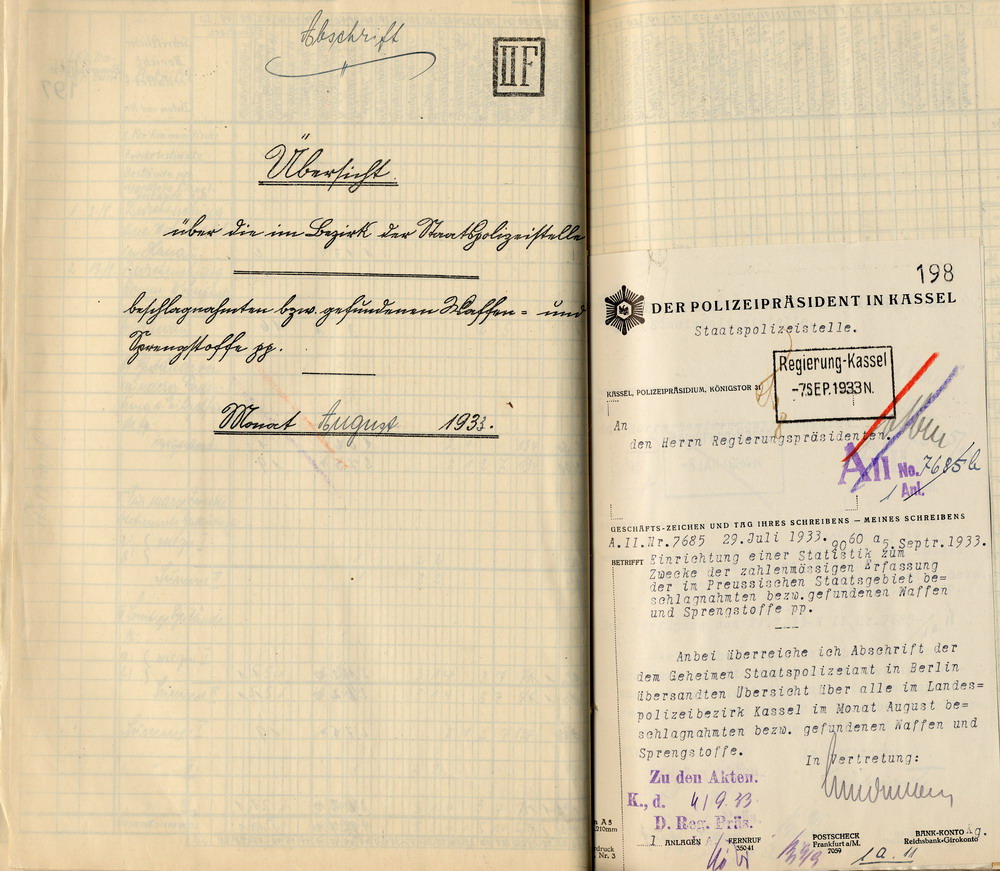 Abschrift
II F
Übersicht
über die im Bezirk der Staatspolizeistelle
beschlagnahmten bzw. gefundenen Waffen- und
Sprengstoffe pp.
Monat August 1933.
198
DER POLIZEIPRÄSIDENT IN KASSEL
Staatspolizeistelle.
Regierung-Kassel
-7.SEP.1933 N.
KASSEL, POLIZEIPRÄSIDIUM, KÖNIGSTOR 31
An
den Herrn Regierungspräsidenten.
A II No. 7685
1 Anl.
GESCHÄFTS-ZEICHEN UND TAG IHRES SCHREIBENS — MEINES SCHREIBENS
A.II.Nr.7685 29.Juli 1933. 9060 a 5.Septr.1933.
BETRIFFT Einrichtung einer Statistik zum
Zwecke der zahlenmässigen Erfassung
der im Preussischen Staatsgebiet be=
schlagnahmten bezw.gefundenen Waffen
und Sprengstoffe pp.
Anbei überreiche ich Abschrift der
dem Geheimen Staatspolizeiamt in Berlin
übersandten Übersicht über alle im Landes=
polizeibezirk Kassel im Monat August be=
schlagnahmten bezw. gefundenen Waffen und
Sprengstoffe.
In Vertretung:
Zu den Akten.
K., d. 4/9.33.
D. Reg. Präs.
1 ANLAGEN FERNRUF POSTSCHECK BANK-KONTO
35041 Frankfurt a/M. Reichsbank-Girokonto
7059